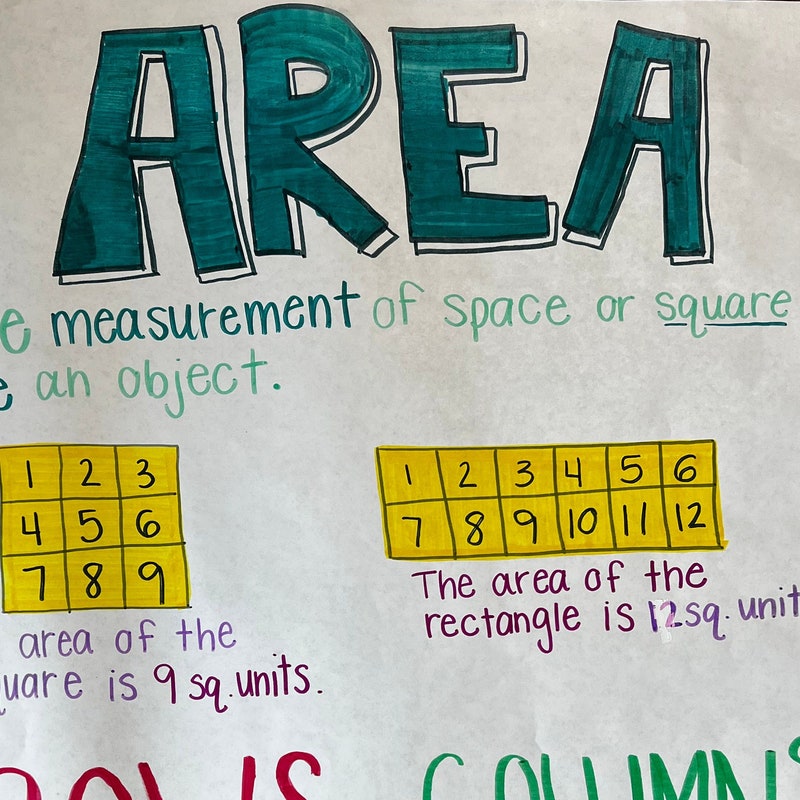 AREA
e measurement of space or square
e an object.
1 2 3
4 5 6
7 8 9
1 2 3 4 5 6
7 8 9 10 11 12
area of the
quare is 9 sq. units.
The area of the
rectangle is 12 sq. unit
ROWS COLUMNS